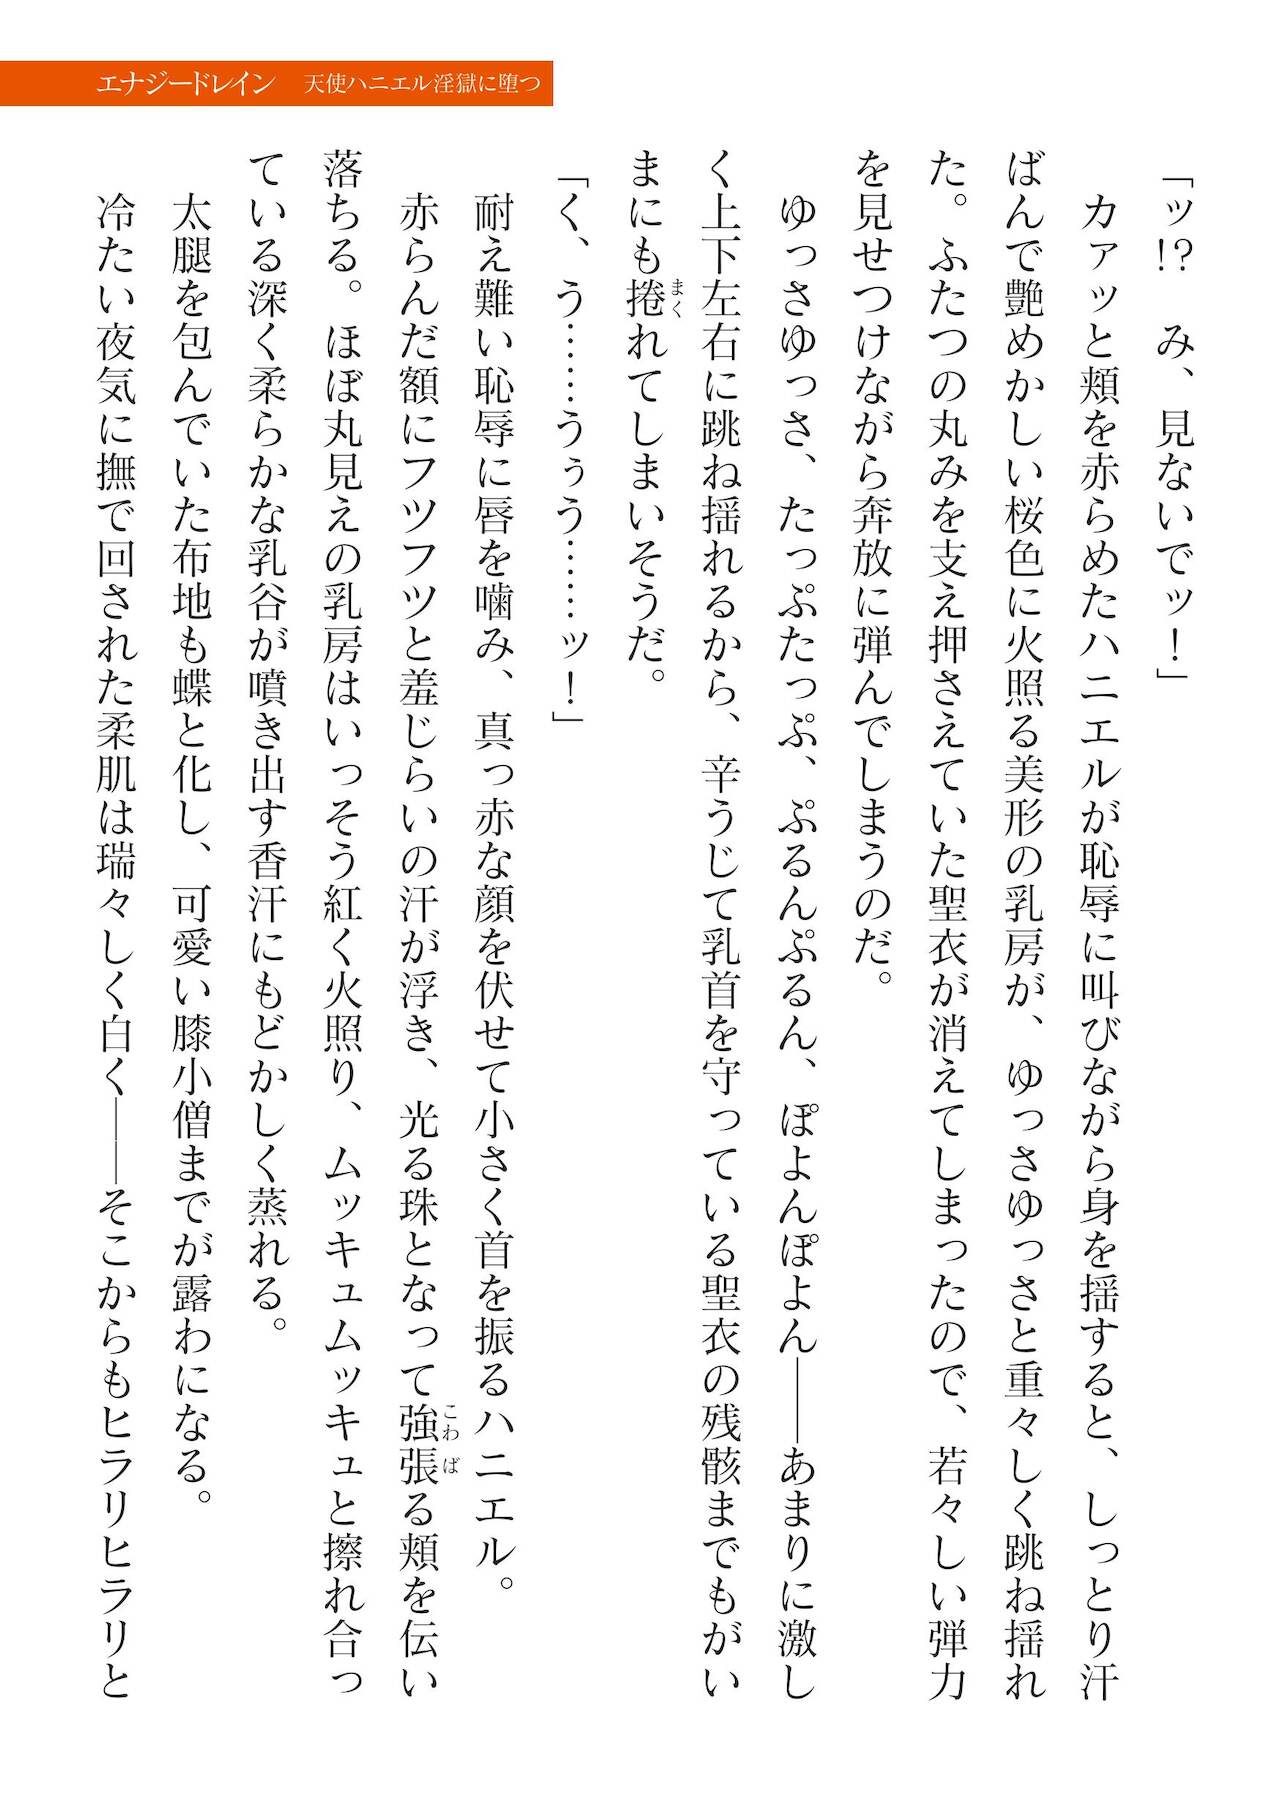 エナジードレイン　天使ハニエル淫獄に堕つ
「ッ!?　み、見ないでッ！」
　カァッと頬を赤らめたハニエルが恥辱に叫びながら身を揺すると、しっとり汗
ばんで艶めかしい桜色に火照る美形の乳房が、ゆっさゆっさと重々しく跳ね揺れ
た。ふたつの丸みを支え押さえていた聖衣が消えてしまったので、若々しい弾力
を見せつけながら奔放に弾んでしまうのだ。
　ゆっさゆっさ、たっぷたっぷ、ぷるんぷるん、ぽよんぽよん――あまりに激し
く上下左右に跳ね揺れるから、辛うじて乳首を守っている聖衣の残骸までもがい
まにも捲れてしまいそうだ。
まく
「く、う……うぅう……ッ！」
　耐え難い恥辱に唇を噛み、真っ赤な顔を伏せて小さく首を振るハニエル。
　赤らんだ額にフツフツと羞じらいの汗が浮き、光る珠となって強張る頬を伝い
こわば
落ちる。ほぼ丸見えの乳房はいっそう紅く火照り、ムッキュムッキュと擦れ合っ
ている深く柔らかな乳谷が噴き出す香汗にもどかしく蒸れる。
　太腿を包んでいた布地も蝶と化し、可愛い膝小僧までが露わになる。
　冷たい夜気に撫で回された柔肌は瑞々しく白く――そこからもヒラリヒラリと